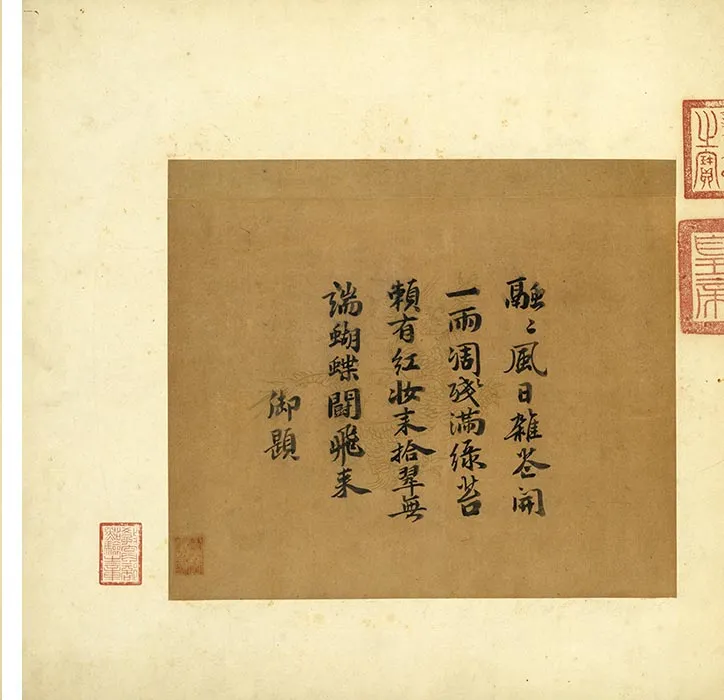 之寶
融〻風日雜花開
一雨凋殘滿緑苔
賴有紅妝来拾翠無
端蝴蝶鬪飛来
御題